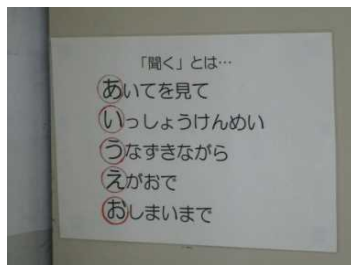 「聞く」とは…
あいてを見て
いっしょうけんめい
うなずきながら
えがおで
おしまいまで